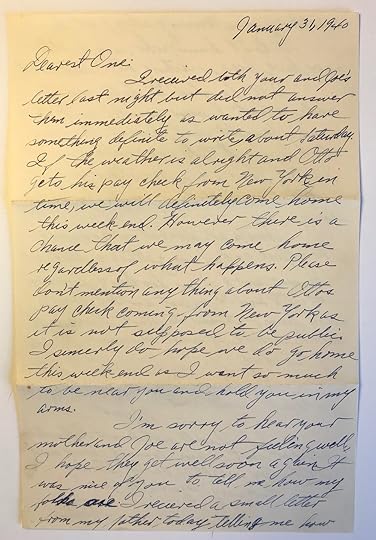 January 31, 1940
Dearest One:
I recieved both your and Joe's
letter last night but did not answer
them immediately as wanted to have
something definite to write about, Saturday.
If the weather is alright and Otto
gets his pay check from New York in
time, we will definitely come home
this week end. However there is a
chance that we may come home
regardless of what happens. Please
don't mention any thing about Ottos
pay check coming from New York as
it is not supposed to be public.
I sincerly do hope we do go home
this week end as I want so much
to be near you and hold you in my
arms.
I'm sorry to hear your
mother and Joe are not feeling well,
I hope they get well soon again. It
was nice of you to tell me how my
folks are I recieved a small letter
from my father today, telling me how